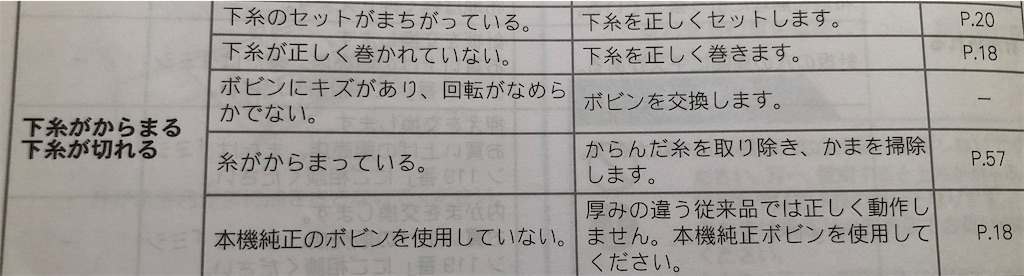 下糸がからまる
下糸が切れる
下糸のセットがまちがっている。
下糸を正しくセットします。
P.20
下糸が正しく巻かれていない。
下糸を正しく巻きます。
P.18
ボビンにキズがあり、回転がなめら
かでない。
ボビンを交換します。
－
糸がからまっている。
からんだ糸を取り除き、かまを掃除
します。
P.57
本機純正のボビンを使用していない。
厚みの違う従来品では正しく動作し
ません。本機純正ボビンを使用して
ください。
P.18